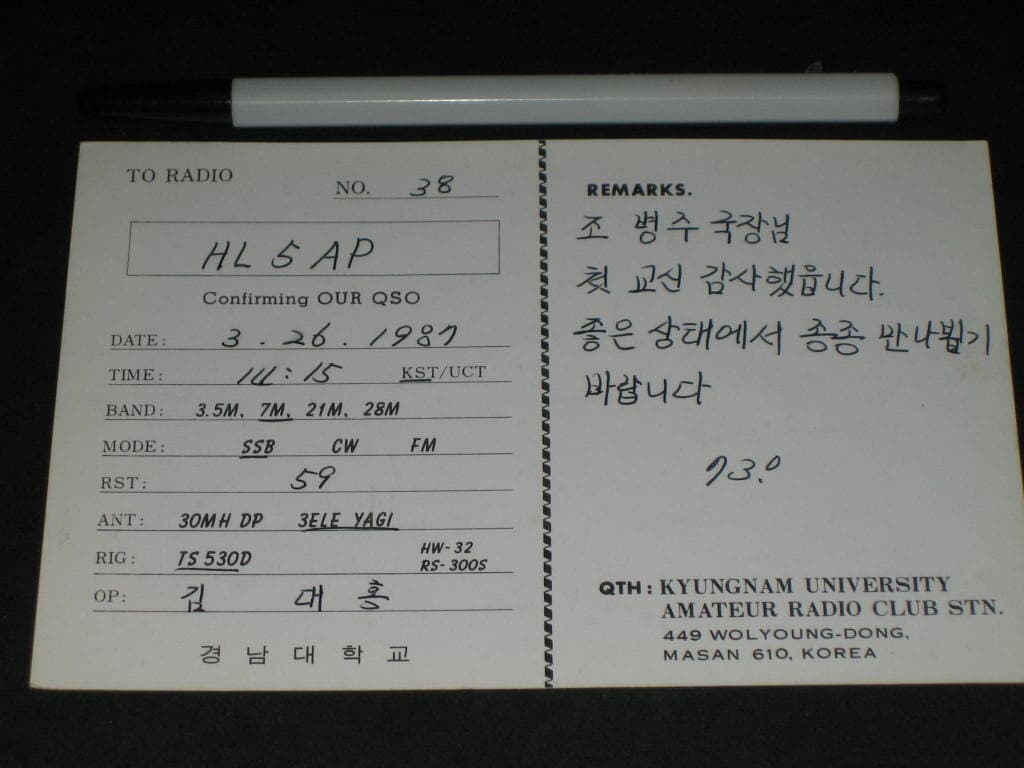 TO RADIO
NO. 38
HL5AP
Confirming OUR QSO
DATE: 3.26.1987
TIME: 14:15 KST/UCT
BAND: 3.5M, 7M, 21M, 28M
MODE: SSB CW FM
RST: 59
ANT: 30MH DP 3ELE YAGI
RIG: TS 530D HW-32
RS-300S
OP: 김 대 홍
경남대학교
REMARKS.
조 병주 국장님
첫 교신 감사했읍니다.
좋은 상태에서 종종 만나뵙기
바랍니다
73.
QTH: KYUNGNAM UNIVERSITY
AMATEUR RADIO CLUB STN.
449 WOLYOUNG-DONG,
MASAN 610, KOREA